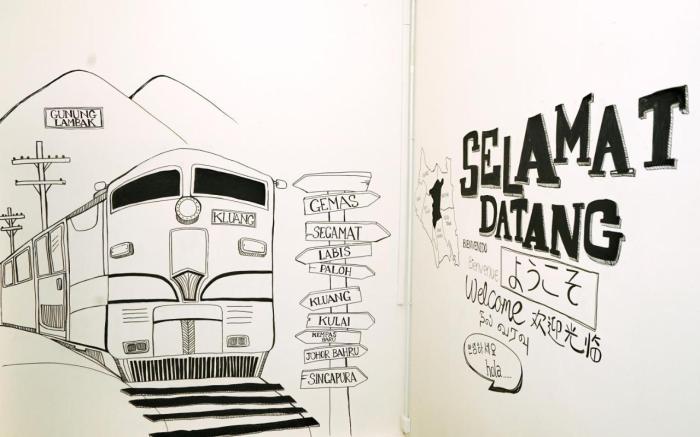 GUNUNG
LAMBAK
KLUANG
GEMAS
SEGAMAT
LABIS
PALOH
KLUANG
KULAI
KEMPAS
BARU
JOHOR BAHRU
SINGAPURA
SELAMAT
DATANG
BIENVENIDO
Bienvenue
ようこそ
Welcome
நல் வரவு
欢迎光临
안녕하세요
hola....